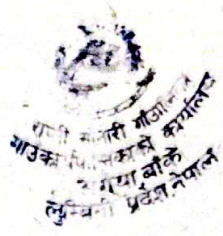 राप्ती सोनारी गाउँपालिका
गाउँ कार्यपालिकाको कार्यालय
बाँके
लुम्बिनी प्रदेश, नेपाल